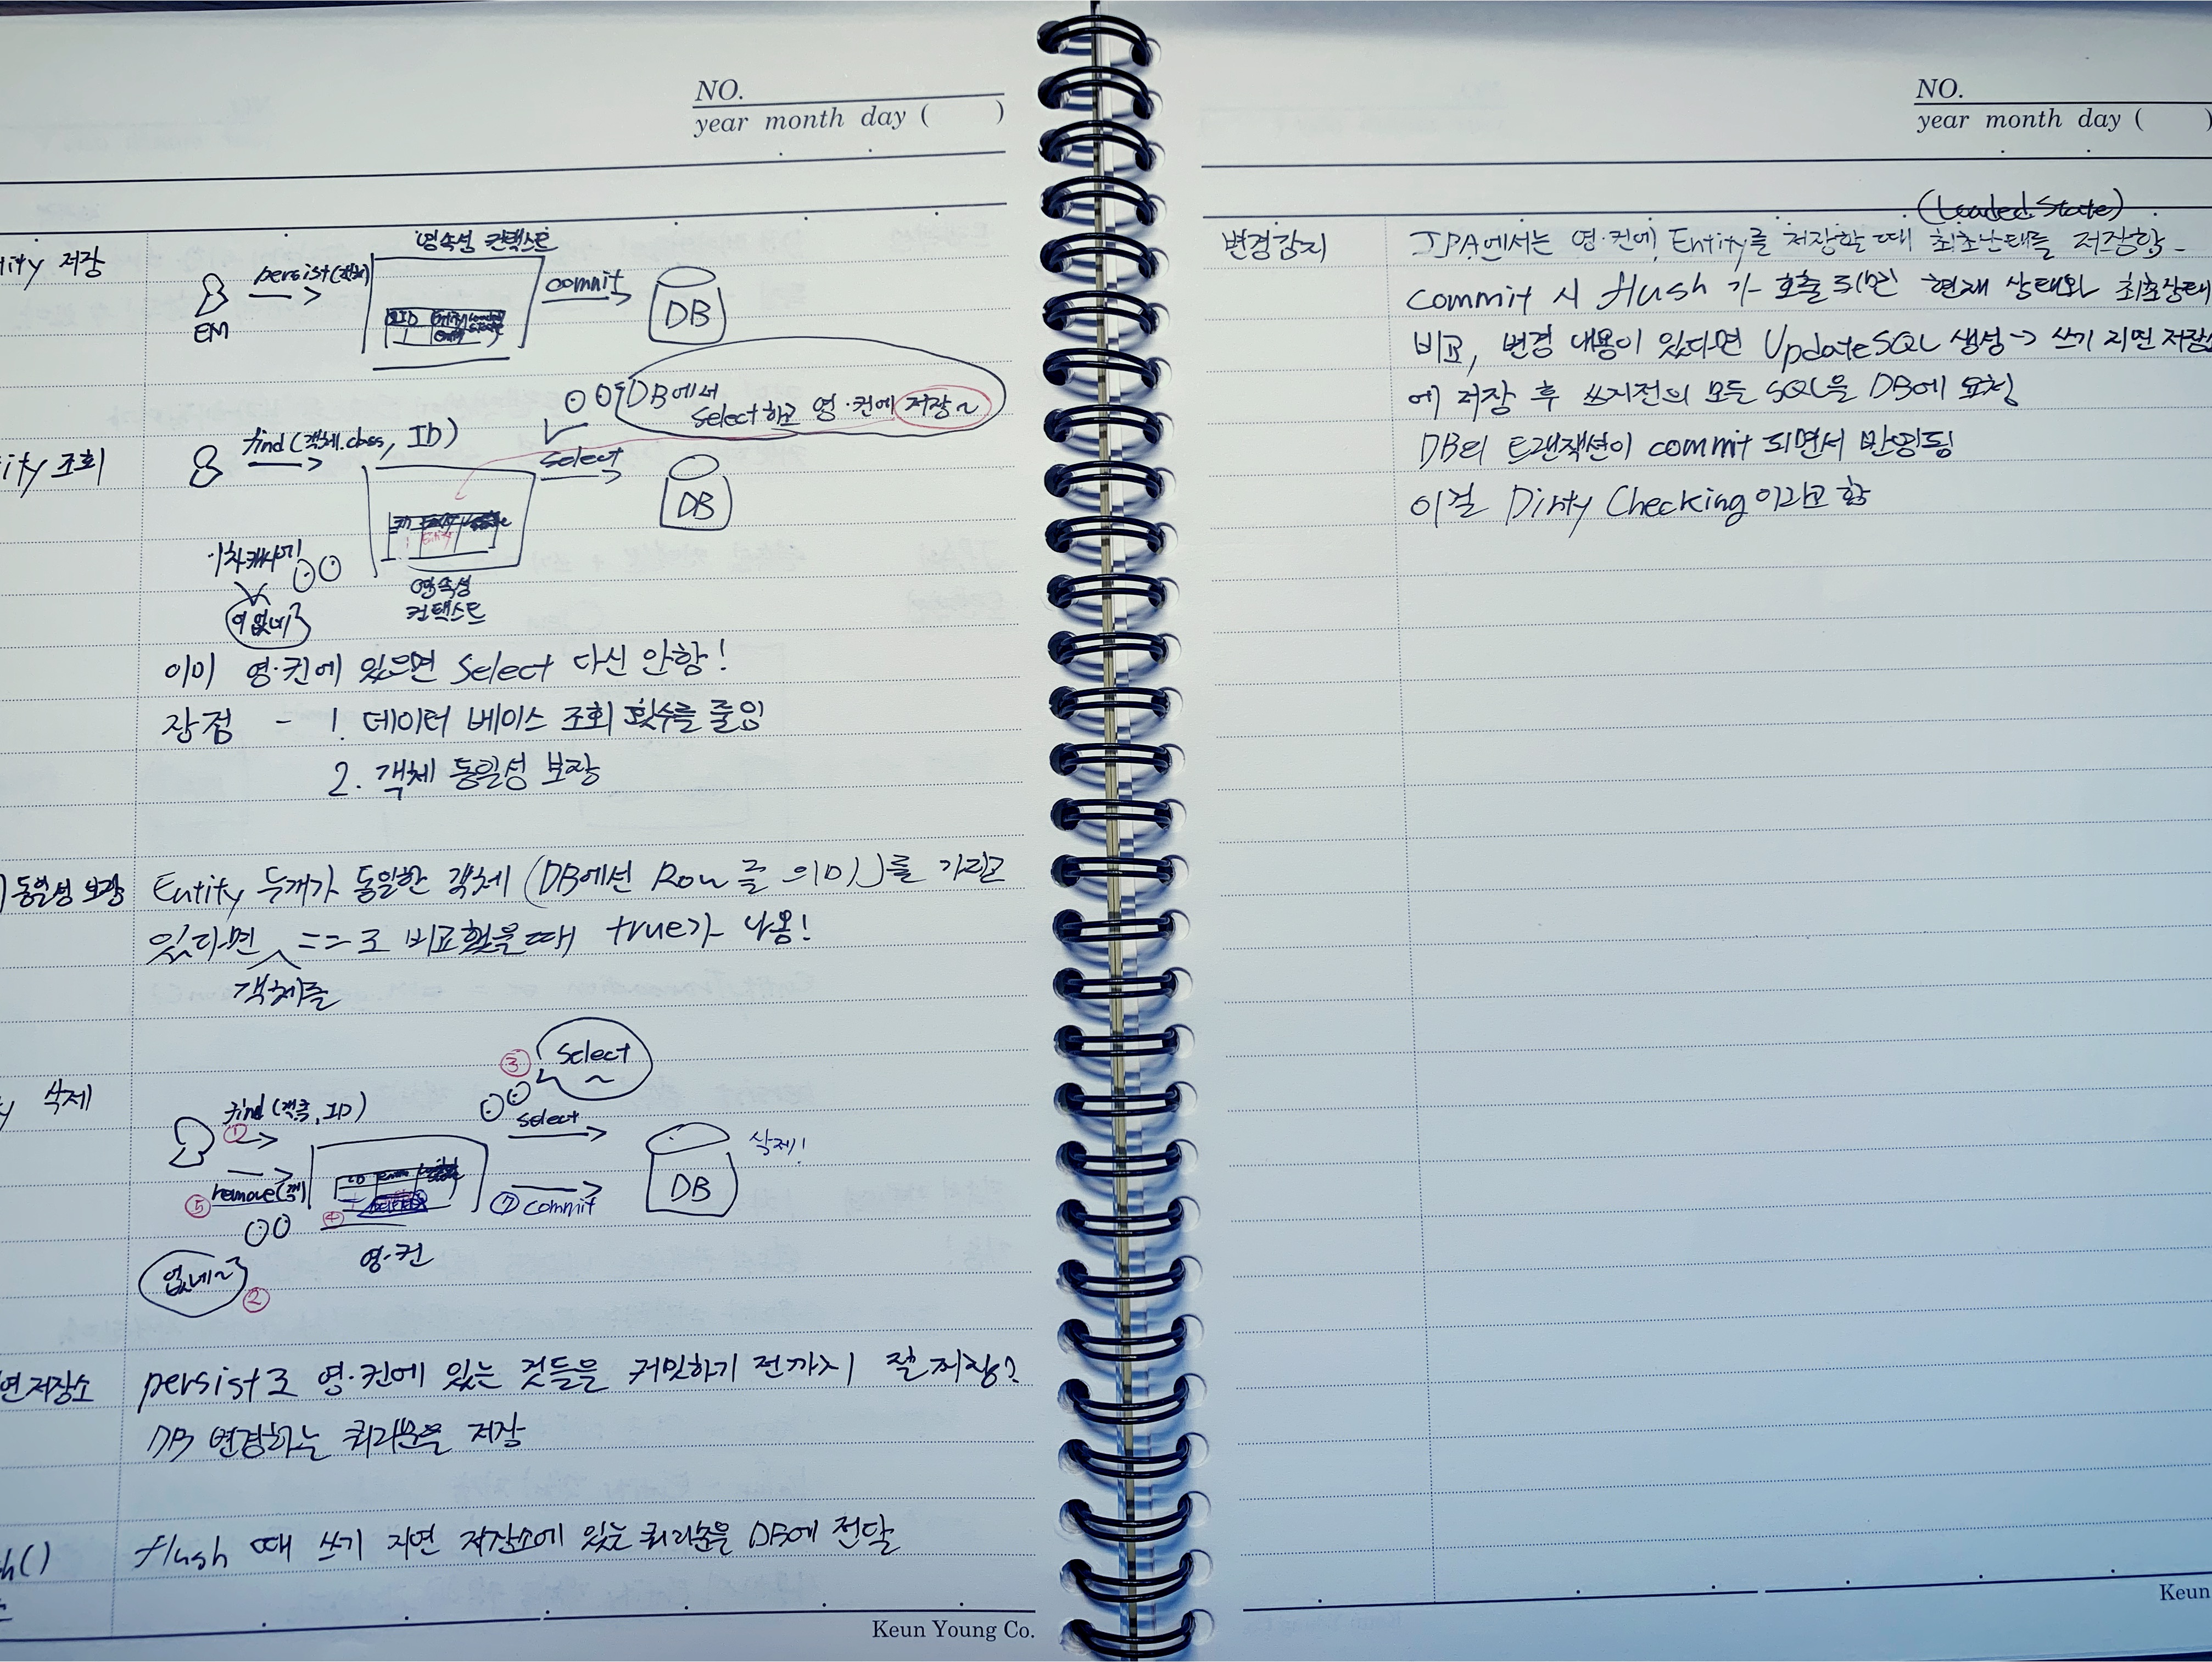 NO.
year month day ( )
tity 저장
영속성 컨텍스트
persist(객체)
EM
commit
DB
ID
DB에서
Select하고 영·컨에 저장~
ity 조회
find(객체.class, ID)
select
DB
1차캐시에!
어 없네?
영속성
컨텍스트
이미 영·컨에 있으면 Select 다신 안함!
장점 - 1. 데이터 베이스 조회 횟수를 줄임
2. 객체 동일성 보장
동일성 보장
Entity 두개가 동일한 객체 (DB에선 Row를 의미)를 가리고
있다면 객체를 == 로 비교했을때 true가 나옴!
삭제
③ Select ~
find(객클, ID)
①
select
DB
삭제!
⑤ remove(객)
④
⑦ commit
영·컨
없네~ ②
연저장소
persist로 영·컨에 있는 것들을 커밋하기 전까지
DB 변경하는 쿼리문을 저장
h()
flush 때 쓰기 지연 저장소에 있는 쿼리문을 DB에 전달
Keun Young Co.
NO.
year month day ( )
(Loaded State)
변경감지
JPA에서는 영·컨에 Entity를 저장할 때 최초상태를 저장함.
commit 시 flush가 호출되면 현재 상태와 최초상태
비교, 변경 내용이 있다면 UpdateSQL 생성 → 쓰기 지연 저장소
에 저장 후 쓰지저의 모든 SQL을 DB에 요청
DB의 트랜잭션이 commit 되면서 반영됨
이걸 Dirty Checking이라고 함
Keun